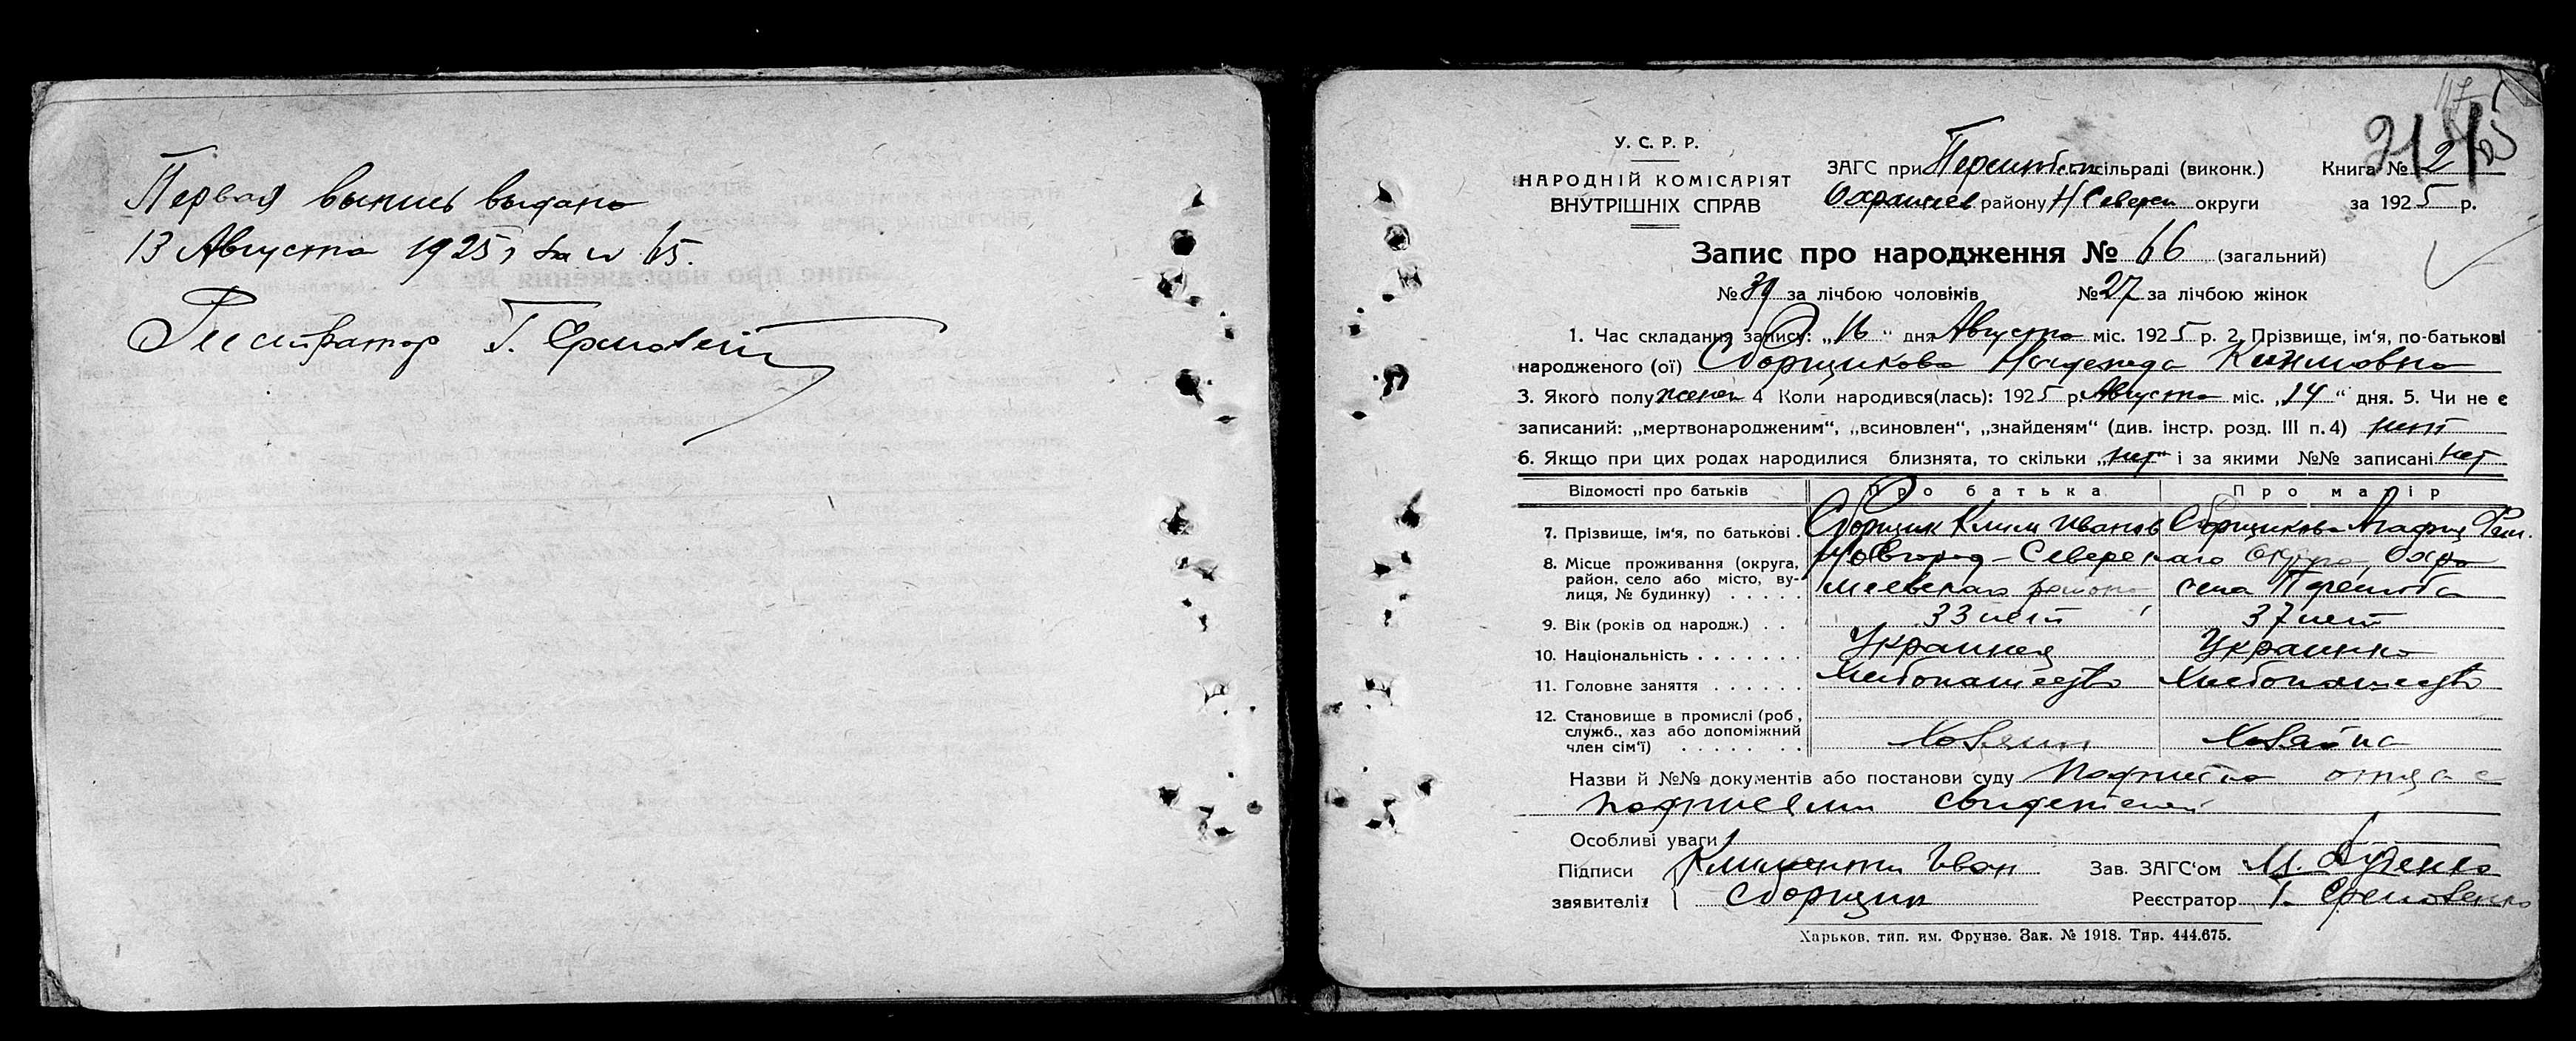 Первая выпись выдана
13 Августа 1925 г за № 65.
Регистратор Г. Ермовенко
У. С. Р. Р.
НАРОДНІЙ КОМІСАРІЯТ
ВНУТРІШНІХ СПРАВ
ЗАГС при сільраді (виконк.)
району Н Северск округи
Книга № 2
за 1925 р.
Запис про народження № 66 (загальний)
№ 39 за лічбою чоловіків № 27 за лічбою жінок
1. Час складання запису: „16“ дня Августа міс. 1925 р. 2. Прізвище, ім'я, по-батькові
народженого (ої) Сборщикова Надежда Климовна
3. Якого полу женск 4 Коли народився(лась): 1925 р. Августа міс. „14“ дня. 5. Чи не є
записаний: „мертвонародженим“, „всиновлен“, „знайденям“ (див. інстр. розд. III п. 4) нет
6. Якщо при цих родах народилися близнята, то скільки „нет“ і за якими №№ записані нет
Відомості про батьків Про батька Про матір
7. Прізвище, ім'я, по батькові . Сборщик Клим Иванов Сборщикова Агафия
8. Місце проживання (округа, Новгород-Северскаго округа, Охра
район, село або місто, ву- миевскаго района села Перелюба
лиця, № будинку) . . . . .
9. Вік (років од народж.) . . 33 лет 37 лет
10. Національність . . . . . . . Украинец Украинка
11. Головне заняття . . . . . . Хлебопашество Хлебопашество
12. Становище в промислі (роб,
служб., хаз або допоміжний Хозяин Хозяйка
член сім'ї) . . . . . . . .
Назви й №№ документів або постанови суду Подписка отца с
подписями свидетелей
Особливі уваги
Підписи Климентий Иван Зав. ЗАГС'ом М.
заявителів Сборщик Реєстратор Г. Ермовенко
Харьков, тип. им. Фрунзе. Зак. № 1918. Тир. 444.675.